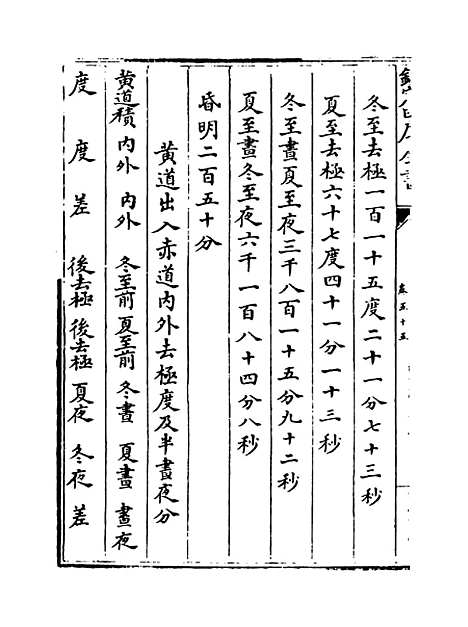 冬至去極一百一十五度二十一分七十三秒
夏至去極六十七度四十一分一十三秒
冬至晝夏至夜三千八百一十五分九十二秒
夏至晝冬至夜六千一百八十四分八秒
昏明二百五十分
黄道出入赤道內外去極度及半晝夜分
黄道積 內外 內外 冬至前 夏至前 冬晝 夏晝 晝夜
度 度 差 後去極 後去極 夏夜 冬夜 差